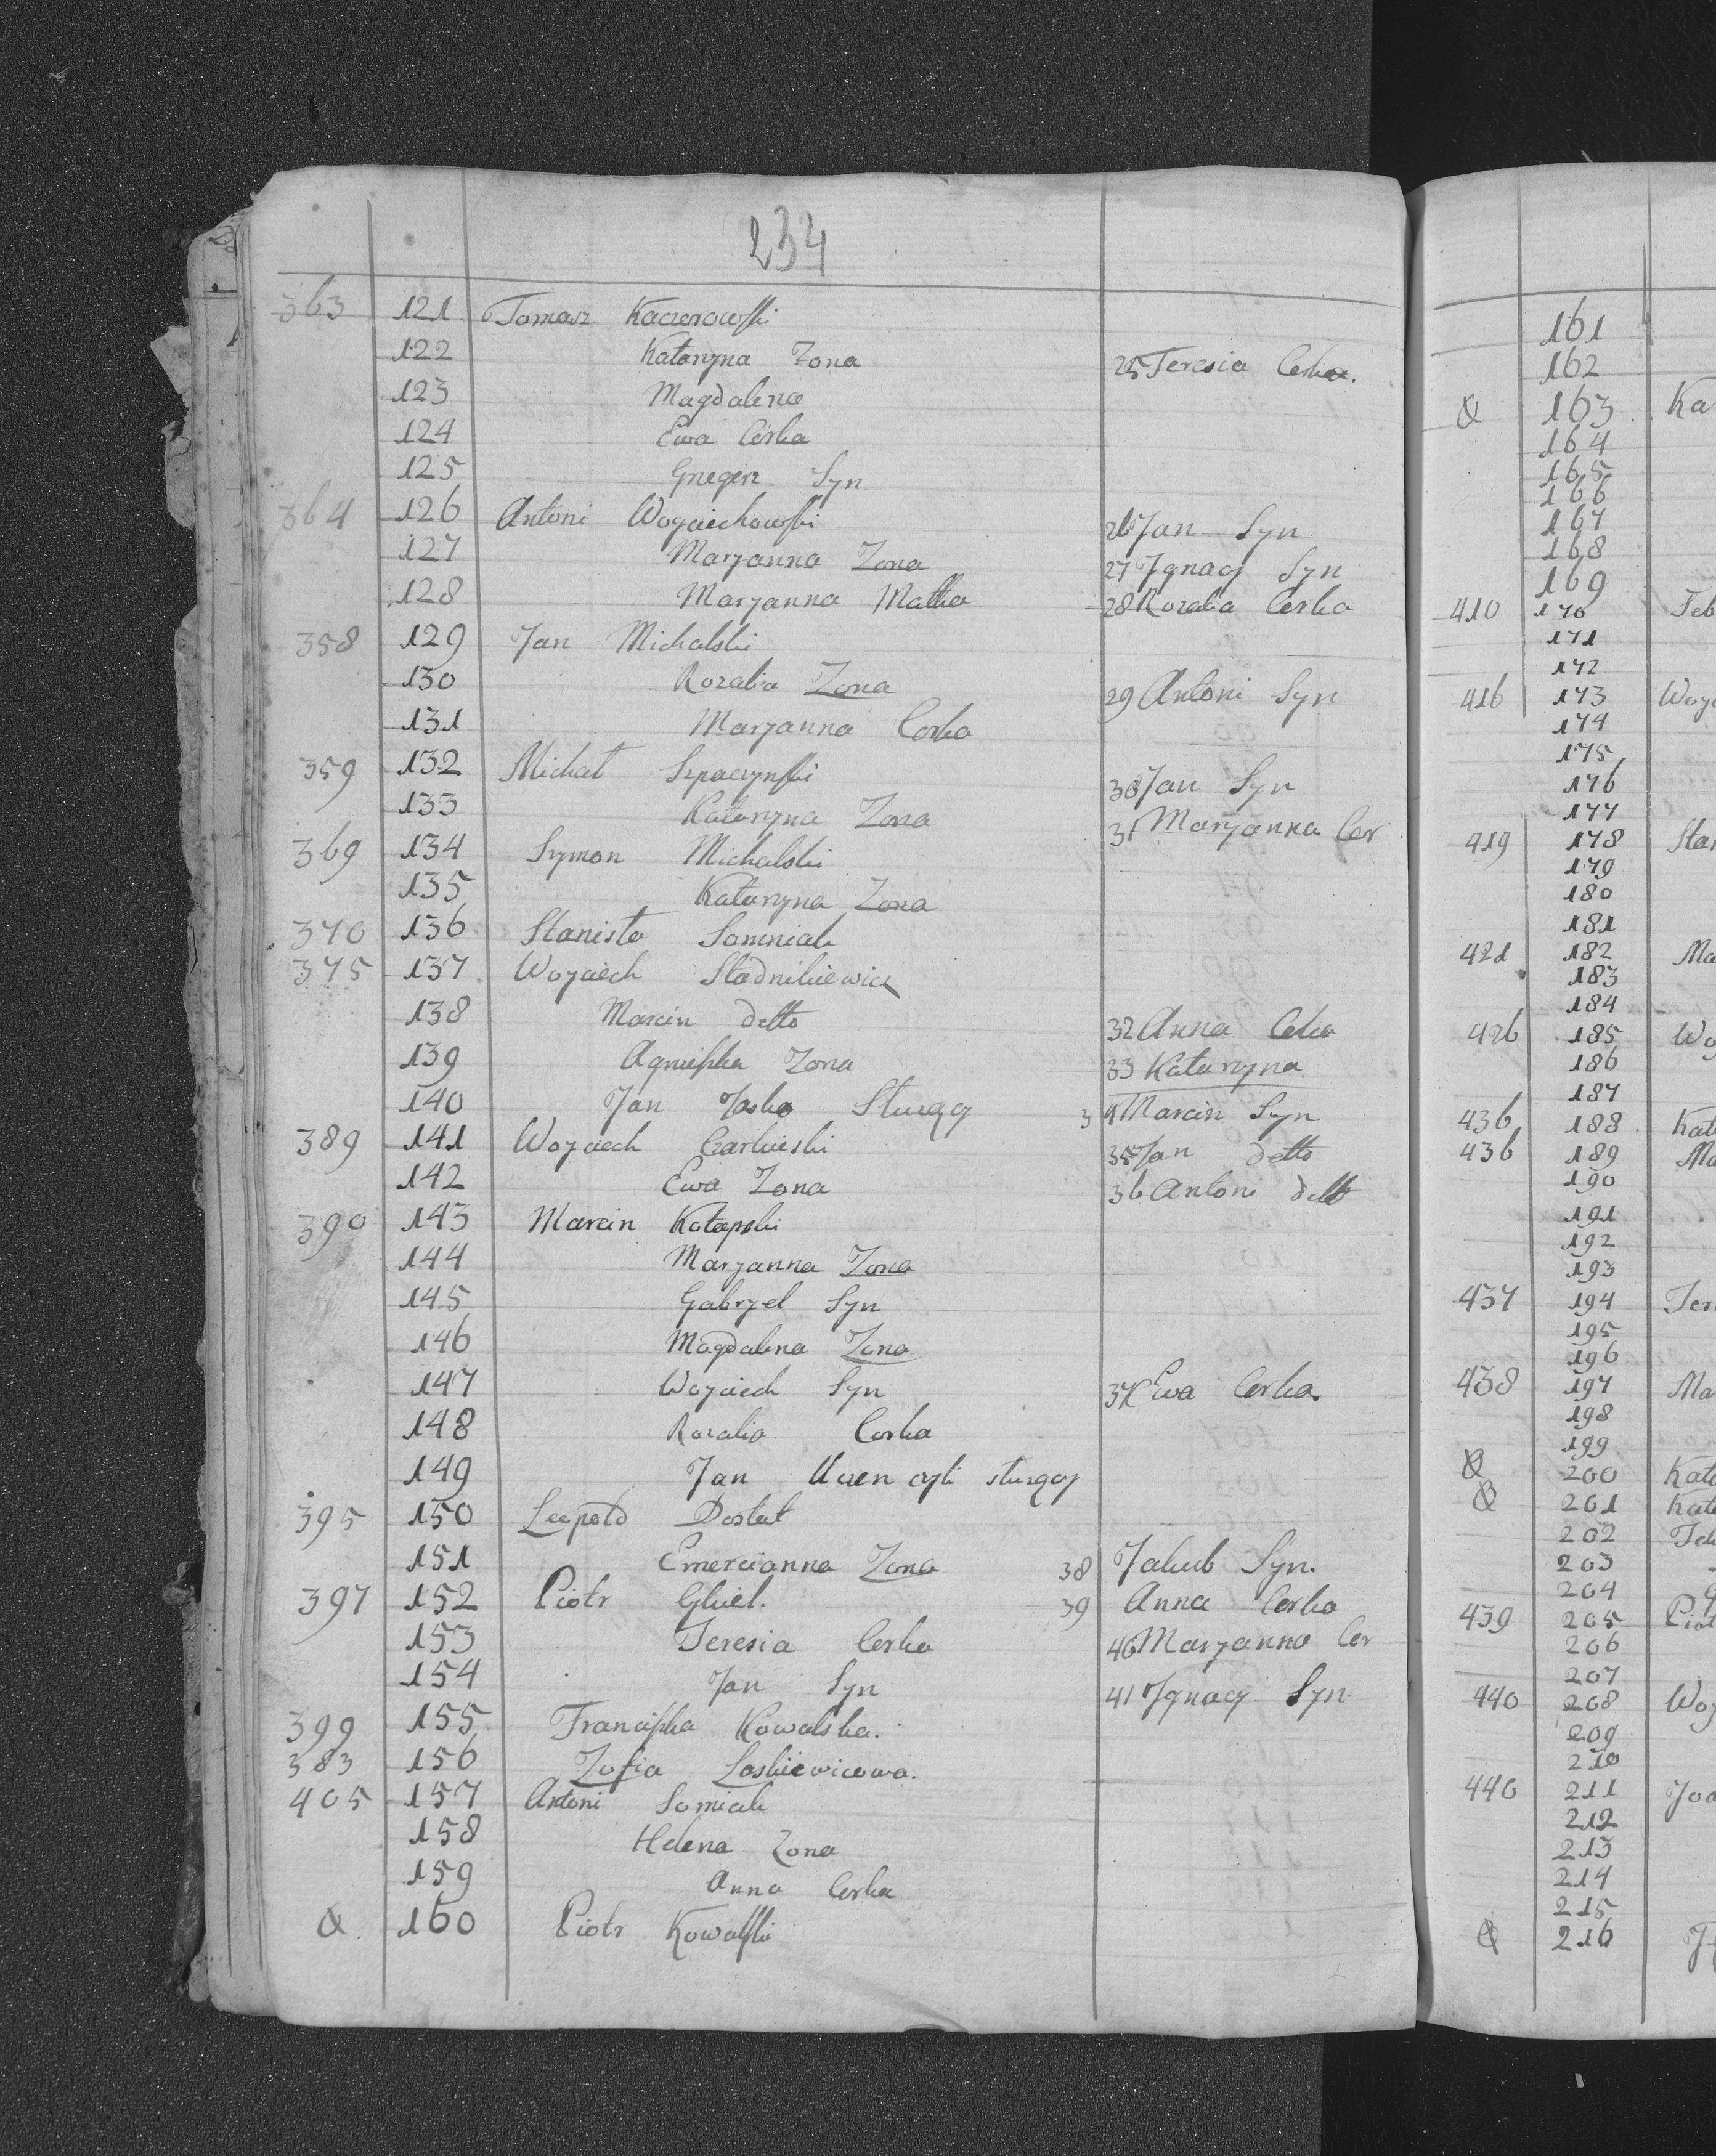 234
363 121 Tomasz Kaczorowski
122 Kataryna Zona 25 Teresia Corka.
123 Magdalena
124 Ewa Córka
125 Gregerz Syn
364 126 Antoni Woyciechowski 26 Jan Syn
127 Maryanna Zona 27 Jgnacy Syn
128 Maryanna Matka 28 Rozalia Corka
358 129 Jan Michalski
130 Rozalia Zona 29 Antoni Syn
131 Maryanna Corka
359 132 Michał Szpaczynski 30 Jan Syn
133 Kataryna Zona 31 Maryanna Cor
369 134 Symon Michalski
135 Kataryna Zona
370 136 Stanisła Somniak
375 137 Woyciech Stadnikiewicz
138 Marcin detto 32 Anna Corka
139 Agnieszka Zona 33 Kataryna
140 Jan Jasko Sturzący 34 Marcin Syn
389 141 Woyciech Garbieski 35 Jan detto
142 Ewa Zona 36 Antoni detto
390 143 Marcin
144 Maryanna Zona
145 Gabryel Syn
146 Magdalena Zona
147 Woyciech Syn 37 Ewa Corka
148 Rozalia Corka
149 Jan
395 150 Leopold Dostat
151 Emercianna Zona 38 Jakub Syn.
397 152 Piotr Gbiel. 39 Anna Corka
153 Teresia Corka 40 Maryanna Cor
154 Jan Syn 41 Jgnacy Syn
399 155 Franciszka Kowalska.
383 156 Zofia Laskiewicowa.
405 157 Antoni Somiak
158 Helena Zona
159 Anna Corka
160 Piotr Kowalski
161
162
163 Ka
164
165
166
167
168
169
410 170 Feb
171
172
416 173 Woy
174
175
176
177
419 178 Sta
179
180
181
421 182 Ma
183
184
426 185 Wo
186
187
436 188 Kat
436 189 Ma
190
191
192
193
437 194 Ter
195
196
438 197 Ma
198
199
200 Kat
201 Kat
202
203
204
439 205 Piot
206
207
440 208 Woy
209
210
440 211 Joa
212
213
214
215
216